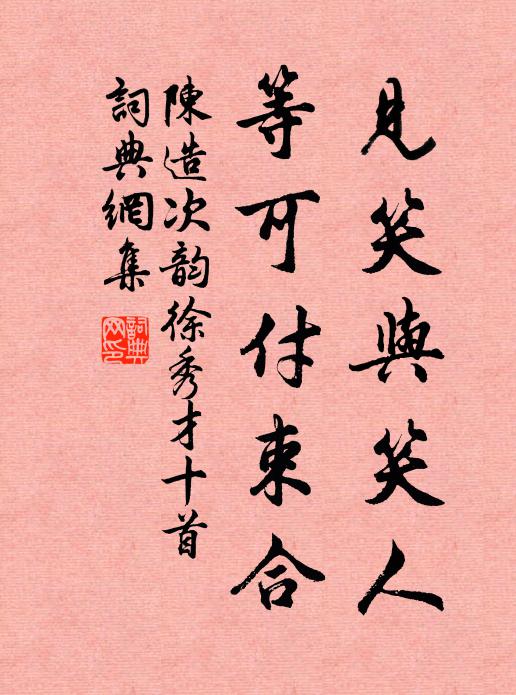 見笑與笑人
等可付東合
陳造次韵徐秀才十首
詞典網集
詞典網印